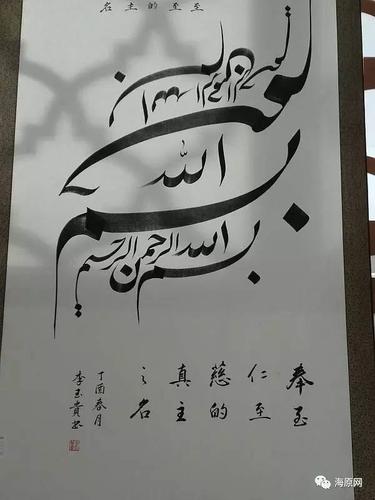 至至的主名
الله
بسم الله الرحمن الرحيم
奉至
仁至
慈的
真主
之名
丁酉春月
李玉貴书
海原网